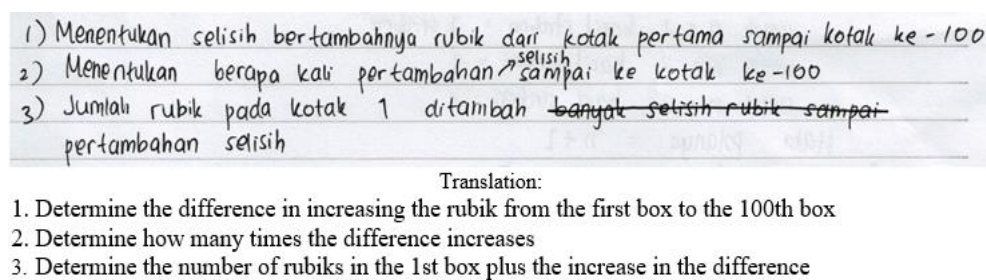 1) Menentukan selisih bertambahnya rubik dari kotak pertama sampai kotak ke-100
2) Menentukan berapa kali pertambahan selisih sampai ke kotak ke-100
3) Jumlah rubik pada kotak 1 ditambah banyak selisih rubik sampai
pertambahan selisih
Translation:
1. Determine the difference in increasing the rubik from the first box to the 100th box
2. Determine how many times the difference increases
3. Determine the number of rubiks in the 1st box plus the increase in the difference